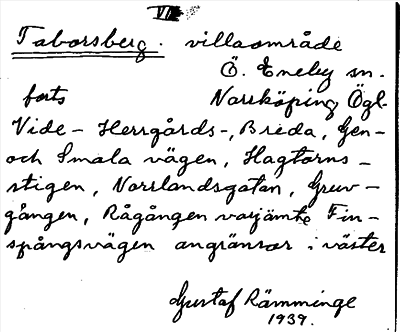 VII
Taborsberg. villaområde
Ö. Eneby sn.
forts Norrköping Ögl.
Vide- Herrgårds-, Breda, Gen-
och Smala vägen, Hagtorns-
stigen, Norrlandsgatan, Gruv-
gången, Rågången varjämte Fin-
spångsvägen angränsar i väster
Gustaf Rämminge
1939.